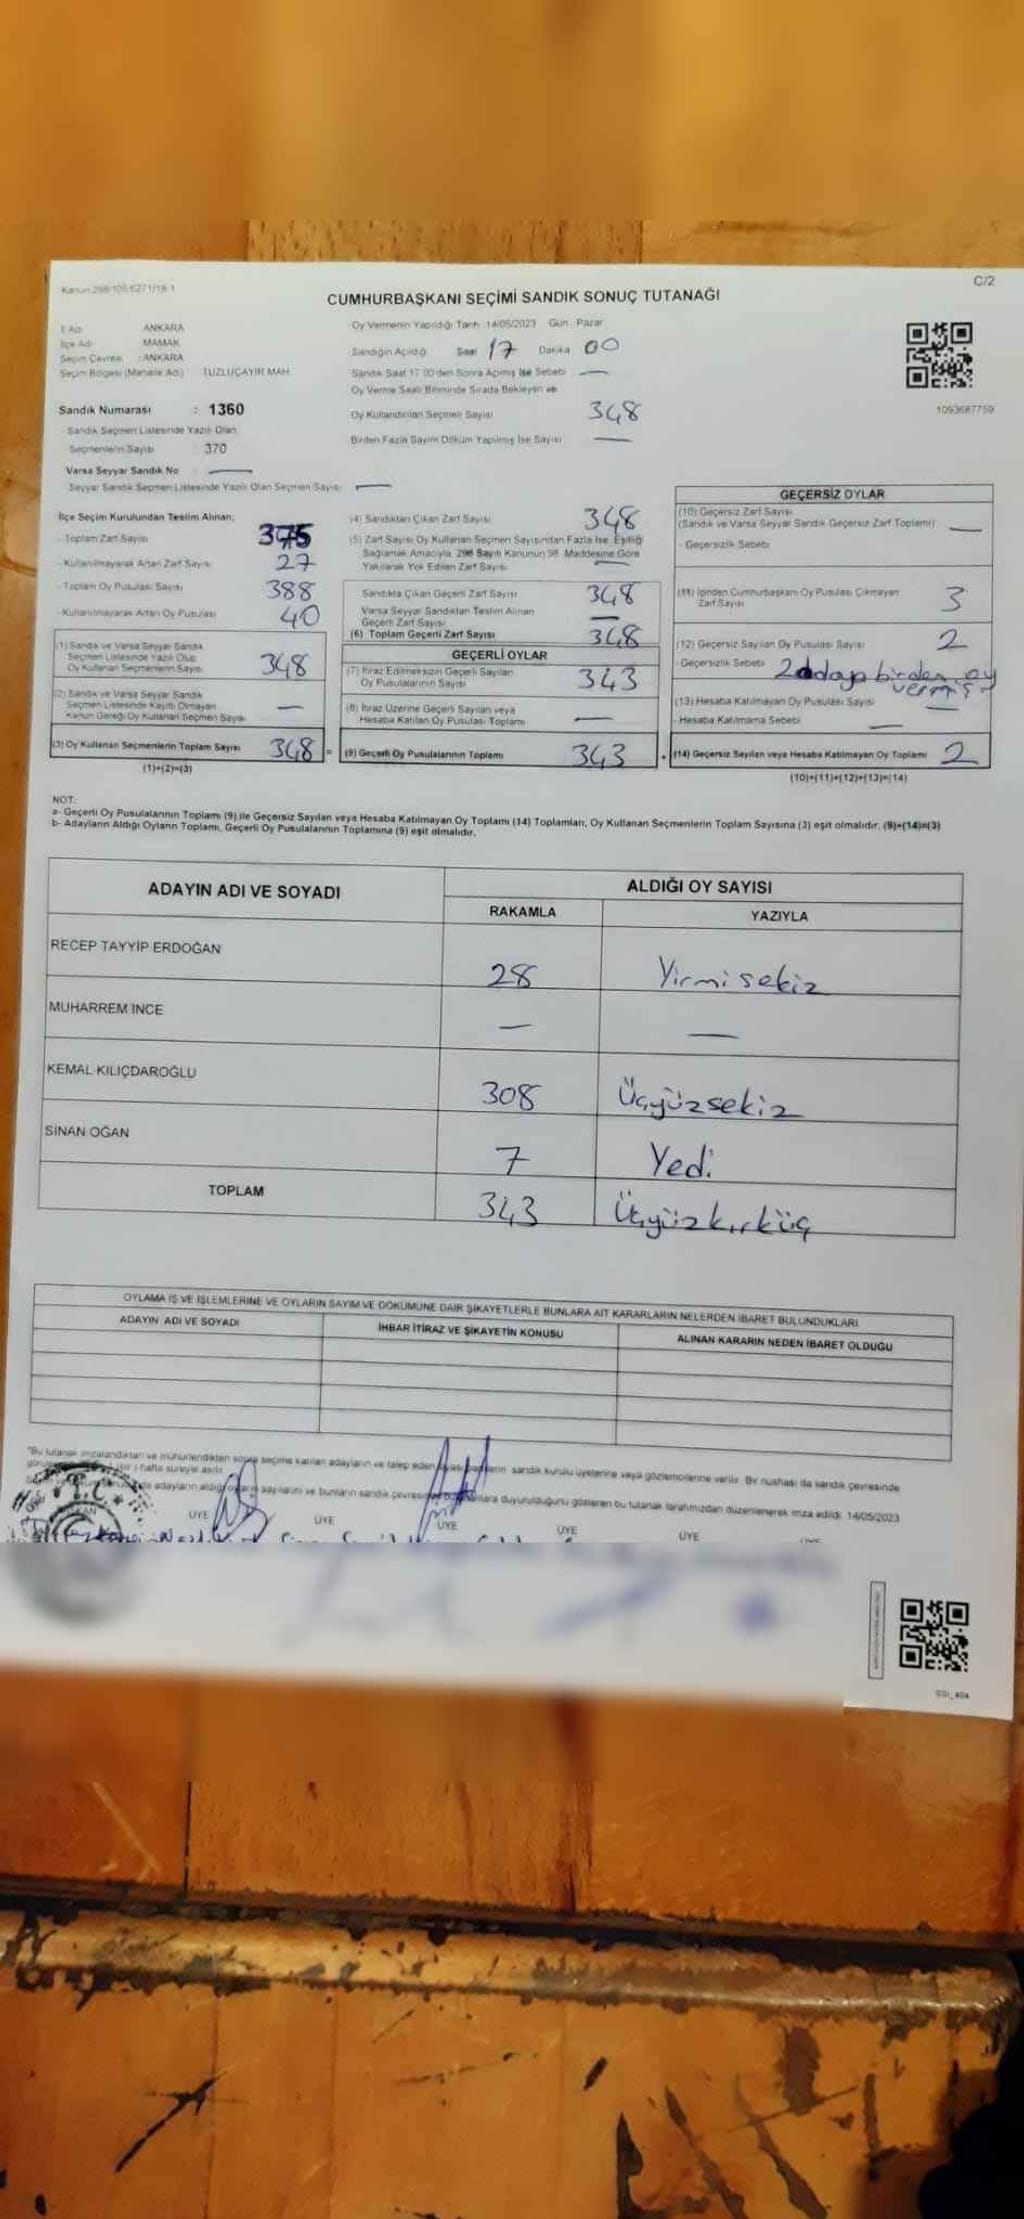 Kanun 298/105,6271/18-1
C/2
CUMHURBAŞKANI SEÇİMİ SANDIK SONUÇ TUTANAĞI
İl Adı ANKARA
İlçe Adı MAMAK
Seçim Çevresi : ANKARA
Seçim Bölgesi (Mahalle Adı) TUZLUÇAYIR MAH
Oy Vermenin Yapıldığı Tarih 14/05/2023 Gün Pazar
Sandığın Açıldığı Saat 17 Dakika 00
Sandık Saat 17 00'den Sonra Açılmış İse Sebebi —
Oy Verme Saati Bitiminde Sırada Bekleyen ve
Oy Kullandırılan Seçmen Sayısı 348
Birden Fazla Sayım Döküm Yapılmış İse Sayısı —
1093687759
Sandık Numarası : 1360
- Sandık Seçmen Listesinde Yazılı Olan
Seçmenlerin Sayısı : 370
Varsa Seyyar Sandık No : —
- Seyyar Sandık Seçmen Listesinde Yazılı Olan Seçmen Sayısı —
İlçe Seçim Kurulundan Teslim Alınan:
- Toplam Zarf Sayısı 375
- Kullanılmayarak Artan Zarf Sayısı 27
- Toplam Oy Pusulası Sayısı 388
- Kullanılmayarak Artan Oy Pusulası 40
(1) Sandık ve Varsa Seyyar Sandık
Seçmen Listesinde Yazılı Olup
Oy Kullanan Seçmenlerin Sayısı 348
(2) Sandık ve Varsa Seyyar Sandık
Seçmen Listesinde Kayıtlı Olmayan
Kanun Gereği Oy Kullanan Seçmen Sayısı —
(3) Oy Kullanan Seçmenlerin Toplam Sayısı 348 =
(1)+(2)=(3)
(4) Sandıktan Çıkan Zarf Sayısı 348
(5) Zarf Sayısı Oy Kullanan Seçmen Sayısından Fazla İse, Eşitliği
Sağlamak Amacıyla, 298 Sayılı Kanunun 98. Maddesine Göre
Yakılarak Yok Edilen Zarf Sayısı —
Sandıkta Çıkan Geçerli Zarf Sayısı 348
Varsa Seyyar Sandıktan Teslim Alınan
Geçerli Zarf Sayısı —
(6) Toplam Geçerli Zarf Sayısı 348
GEÇERLİ OYLAR
(7) İtiraz Edilmeksizin Geçerli Sayılan
Oy Pusulalarının Sayısı 343
(8) İtiraz Üzerine Geçerli Sayılan veya
Hesaba Katılan Oy Pusulası Toplamı —
(9) Geçerli Oy Pusulalarının Toplamı 343
GEÇERSİZ OYLAR
(10) Geçersiz Zarf Sayısı
(Sandık ve Varsa Seyyar Sandık Geçersiz Zarf Toplamı) —
- Geçersizlik Sebebi
(11) İçinden Cumhurbaşkanı Oy Pusulası Çıkmayan
Zarf Sayısı 3
(12) Geçersiz Sayılan Oy Pusulası Sayısı 2
- Geçersizlik Sebebi 2 adaya birden oy
vermiş
(13) Hesaba Katılmayan Oy Pusulası Sayısı —
- Hesaba Katılmama Sebebi —
(14) Geçersiz Sayılan veya Hesaba Katılmayan Oy Toplamı 2
(10)+(11)+(12)+(13)=(14)
NOT:
a- Geçerli Oy Pusulalarının Toplamı (9) ile Geçersiz Sayılan veya Hesaba Katılmayan Oy Toplamı (14) Toplamları, Oy Kullanan Seçmenlerin Toplam Sayısına (3) eşit olmalıdır, (9)+(14)=(3)
b- Adayların Aldığı Oyların Toplamı, Geçerli Oy Pusulalarının Toplamına (9) eşit olmalıdır.
ADAYIN ADI VE SOYADI
ALDIĞI OY SAYISI
RAKAMLA YAZIYLA
RECEP TAYYİP ERDOĞAN 28 Yirmisekiz
MUHARREM İNCE — —
KEMAL KILIÇDAROĞLU 308 Üçyüzsekiz
SİNAN OĞAN 7 Yedi
TOPLAM 343 Üçyüzkırküç
OYLAMA İŞ VE İŞLEMLERİNE VE OYLARIN SAYIM VE DÖKÜMÜNE DAİR ŞİKAYETLERLE BUNLARA AİT KARARLARIN NELERDEN İBARET BULUNDUKLARI
ADAYIN ADI VE SOYADI İHBAR İTİRAZ VE ŞİKAYETİN KONUSU ALINAN KARARIN NEDEN İBARET OLDUĞU
"Bu tutanak imzalandıktan ve mühürlendikten sonra seçime katılan adayların ve talep eden siyasi partilerin sandık kurulu üyelerine veya gözlemcilerine verilir. Bir nüshası da sandık çevresinde
hafta süreyle asılır
adayların aldığı oyların sayılarını ve bunların sandık çevresinde duyurulduğunu gösteren bu tutanak tarafımızdan düzenlenerek imza edildi. 14/05/2023
ÜYE ÜYE ÜYE ÜYE ÜYE
T.C.